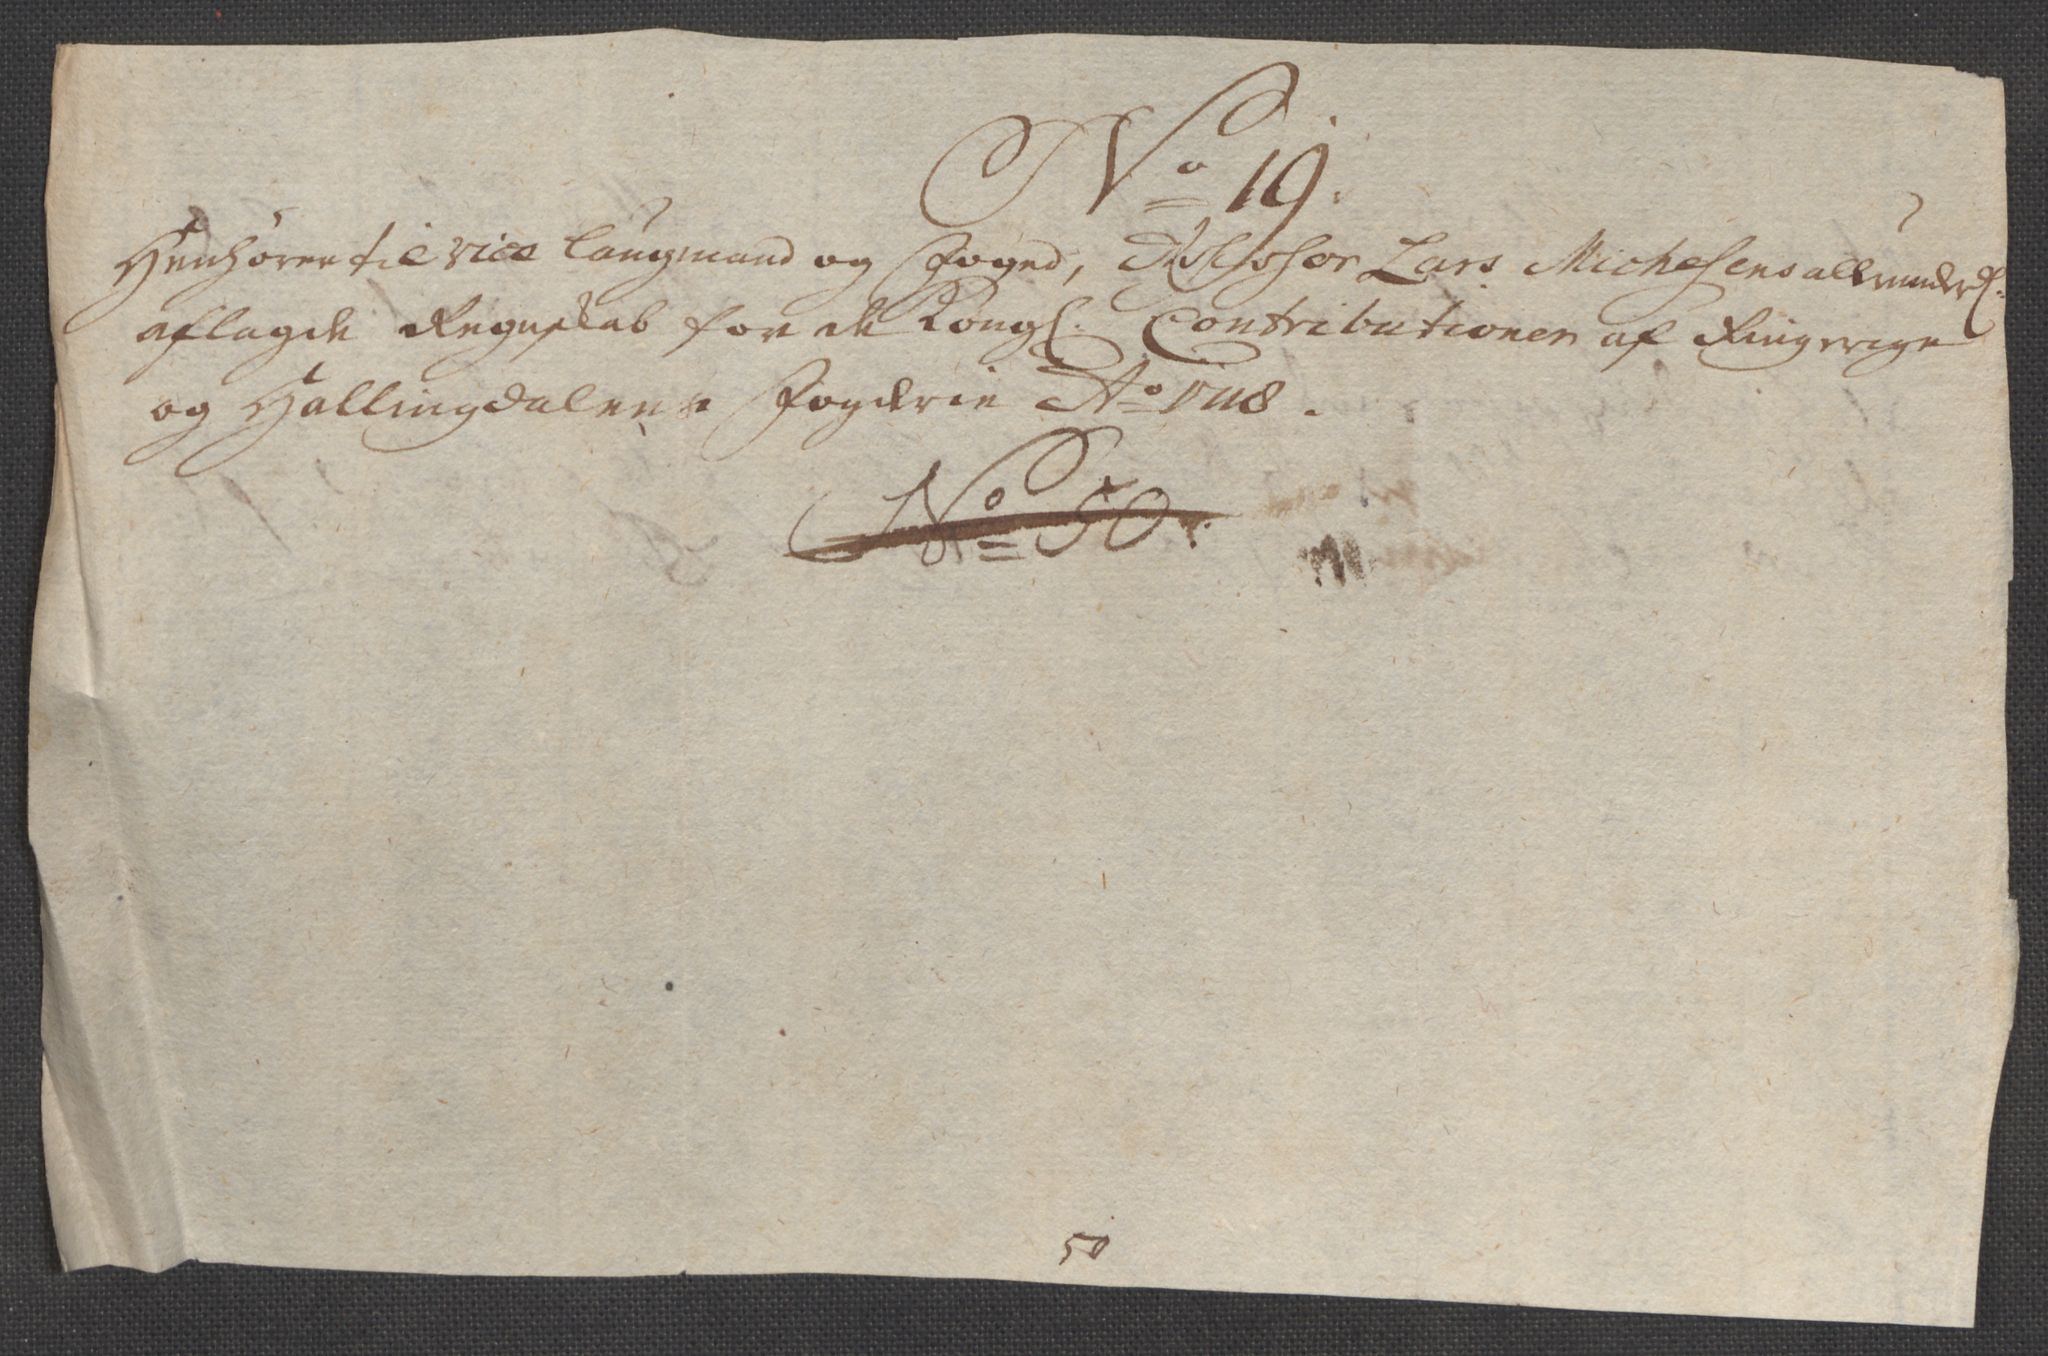 No 19.
Henhører til vice Laugmand og Foged, Assessor Lars Michelsens allerunderd:
aflagde Regnskab for de Kongl: Contributioner af Ringerige
og Hallingdalens Fogderie Ao 1718.
No 50.
50